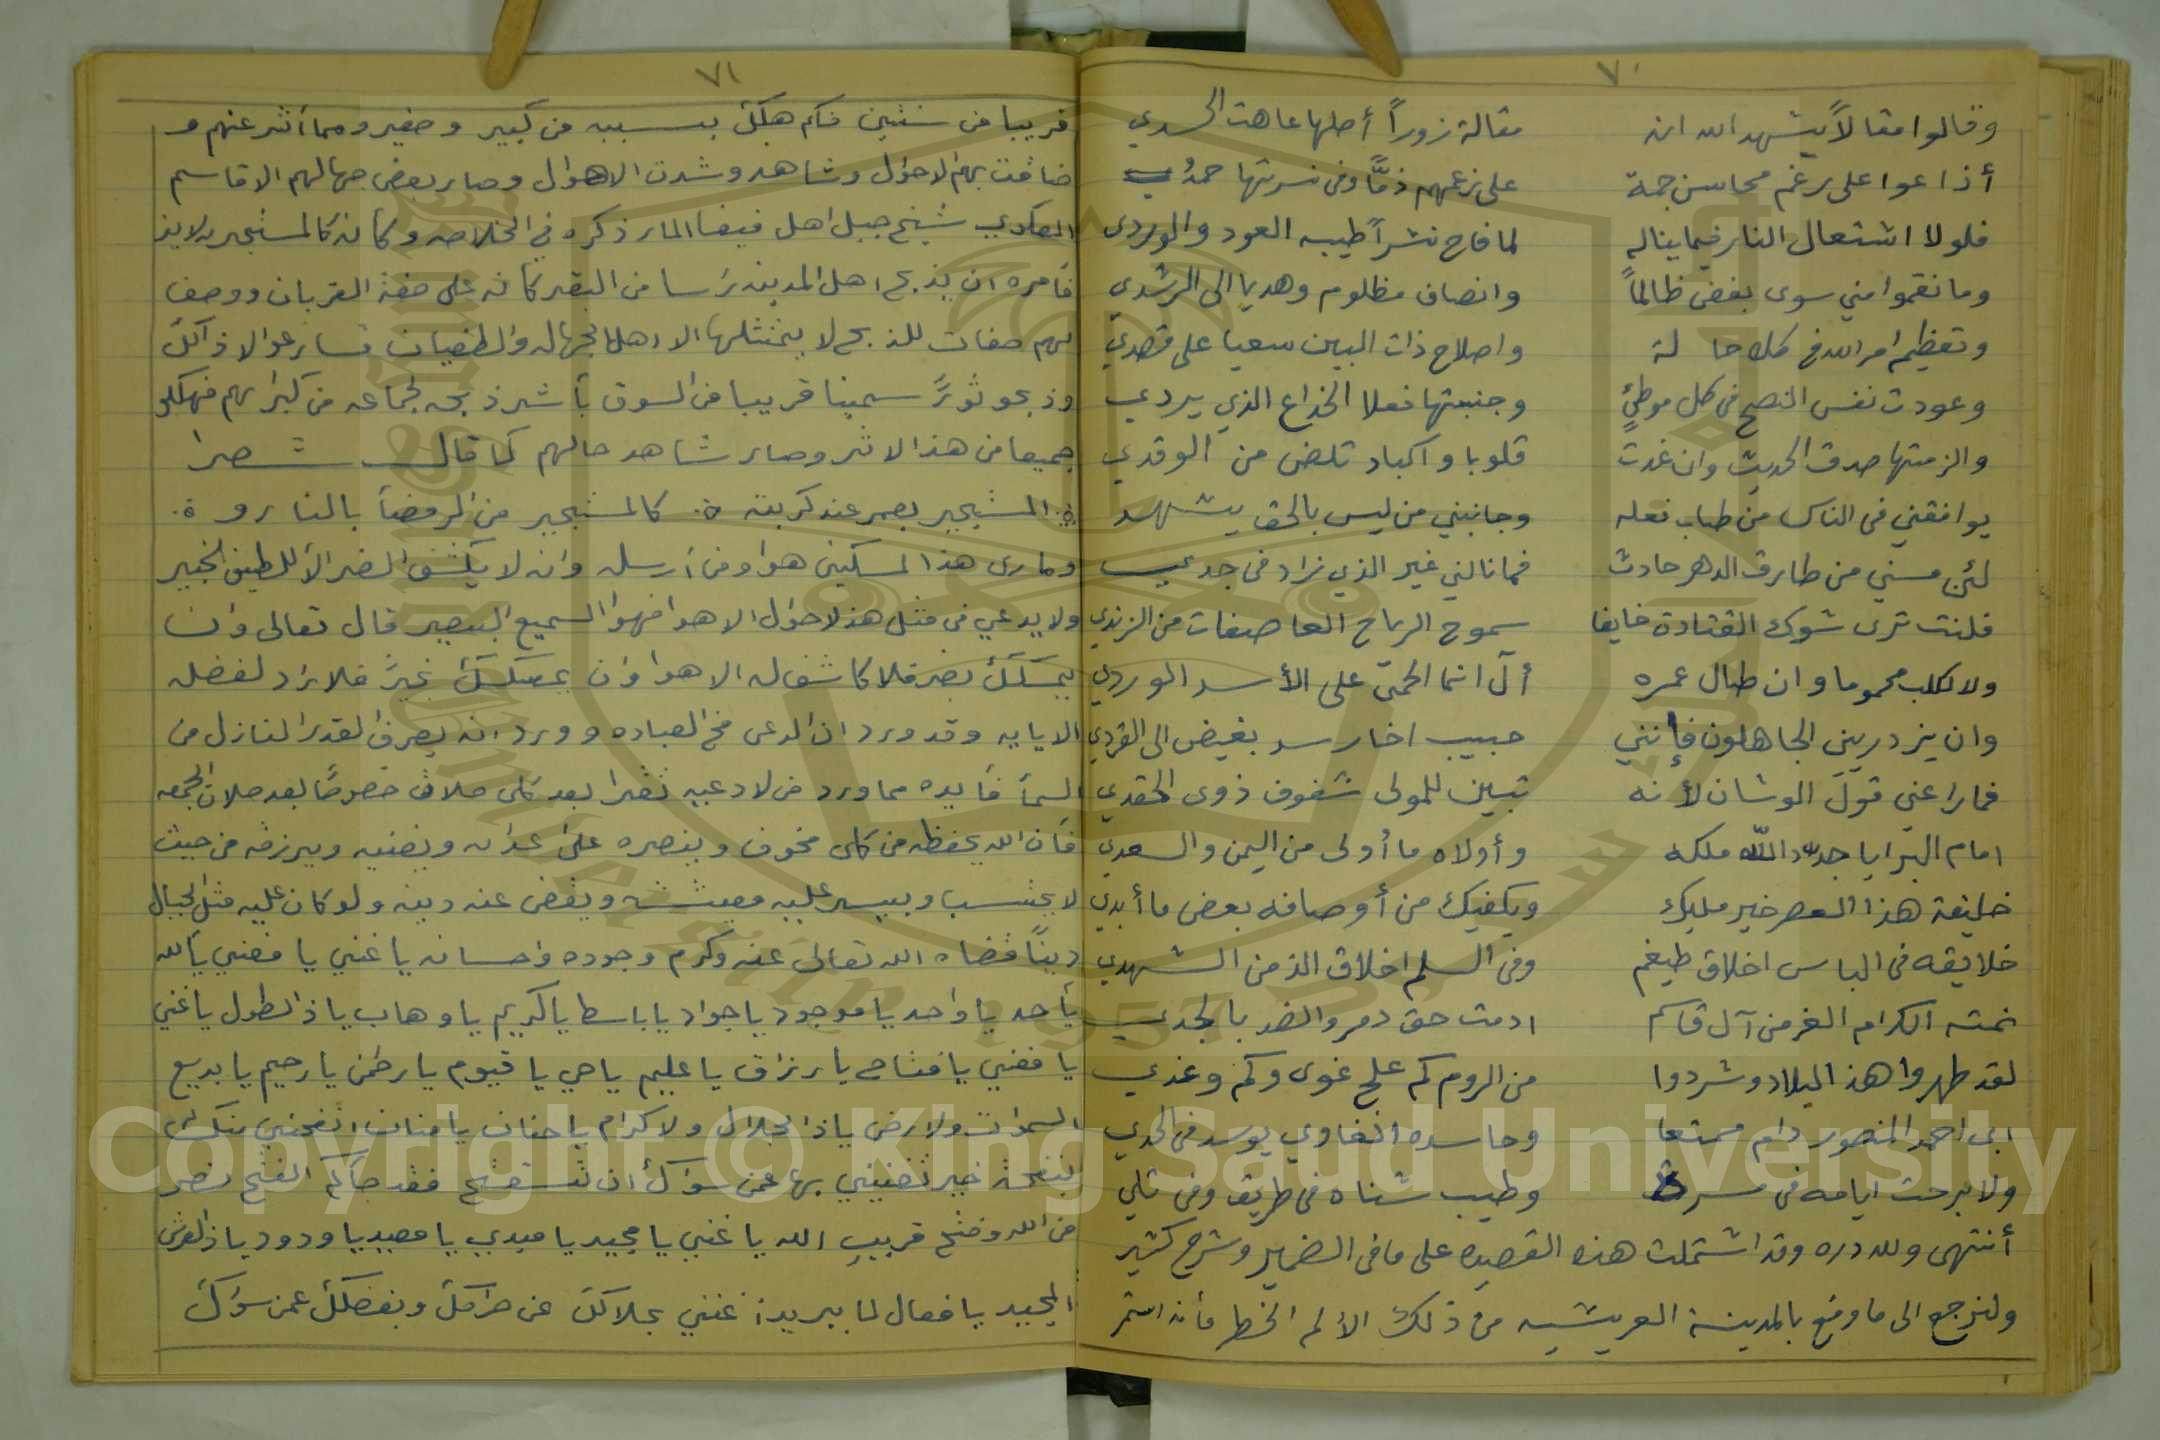 ٧٠
وقالوا مقالاً يشهد الله انه مقالة زوراً أصلها عاهة الحسدي
أذاعوا على رغم محاسن جمة على زعمهم ذمًّا وفى نسرتها حمدُ
فلولا اشتعال النار فيما يناله لما فاح نشراً طيبه العود والوردى
وما نقموا مني سوى بغض ظالماً وانصاف مظلوم وهديا الى الرشدي
وتعظيم امر الله فى كل حالة واصلاح ذات البين سعيا على قصدي
وعودت نفس النصح فى كل موطئٍ وجنبتها فعلا الخداع الذي يردي
والزمتها صدق الحديث وان غدت قلوبا واكباد تلضى من الوقدي
يوافقني فى الناس من طاب فعله وجانبني من ليس بالحق يشهد
لئن مسني من طارق الدهر حادث فما نالني غير الذي زاد فى جدي
فلنت ترى شوك القتادة خايفا سموح الرياح العاصفات من الزندي
ولا لكلب محموما وان طال عمره ألا انما الحمى على الأسد الوردي
وان يزدريني الجاهلون فإنني حبيب اخا رسد بغيض الى القردي
فما راعني قول الوشان لأنه تبين للمولى شفوف ذوى الحقدي
امام البرايا جدد الله ملكه وأولاه ما أولى من اليمن والسعدي
خليفة هذا العصر خير مليك ويكفيك من أوصافه بعض ما أبدي
خلايقه فى الباس اخلاق ضيغم وفى السلم اخلاق الذ من الشهدي
نمته الكرام الغر من آل قاسم ادمت حق دمر والضد بالجدي
لقد طهروا هذ البلاد وشردوا من الروم كم علج غوى وكم وغدي
ابى احمد المنصور دام ممتعا وحاسده الغاوي يوسد فى الحدي
ولا برحت ايامه فى مسرة وطيب شناه فى طريق وفى تلي
أنتهى ولله دره وقد اشتملت هذه القصيده على مافى الضمير وشرح كثير
ولنرجع الى ما وقع بالمدينة العريشيه من ذلك الألم الخطر فأنه استمر
٧١
قريبا من سنتين فكم هلك بسببه من كبير وصغير ومما أثر عنهم و
ضاقت بهم الاحوال وشاهد وشدت الاهوال وصار بعض جهالهم الا قاسم
العكدي شيخ جبل اهل فيفا المار ذكره في الخلاصه وكان كالمستجير
فأمره ان يذبح اهل المدينه رسا من البقر كانه على صفة القربان ووصف
لهم صفات للذبح لا يتمثلها الا اهل الجهاله والطغيان تسارعوا لا ذالك
وذبحو ثورً سمينا قريبا من السوق بأشر ذبحه لجماعه من كبرايهم فهلكو
جميعا من هذا الاثر وصار شاهد حالهم كما قال شعرا
المستجير بعمر عند كربته كالمستجير من الرمضأ بالنارو
ومارى هذا المسكين هوا ومن أرسله وانه لا يكشف الضر الا اللطيف الخبير
ولا يدعي فى مثل هذ لاحوال الا هوا فهوا السميع البصير قال تعالى وانـ
يمسسك بضر فلا كاشف له الا هوا وان يمسكك بخيرً فلا راد لفضله
الايايه وقد ورد ان الدعى مخ العباده وورد انه يصرف القدر النازل من
السمأ فأيده مما ورد من لادعيه تقرا بعد كلى صلاة خصوصًا بعد صلات الجمعه
فأن الله يحفظه من كلى مخوف وينصره على اعداه ويغنيه ويرزقه من حيث
لا يحتسب وييسر عليه معيشته ويقضى عنه دينه ولو كان عليه مثل الجبال
دينًا قضاه الله تعالى عنه وكرم وجوده واحسانه يا غني يا مغني يا الله
يأحد يا واحد يا موجود يا جواد يا باسط يا كريم يا وهاب يا ذ لطول يا غني
يا مغني يا فتاح يا رزاق يا عليم يا حي يا قيوم يا رحمن يا رحيم يا بديع
السموات ولارض يا ذالجلال ولاكرام يا حنان يا منان انفحني منك
بنفحة خير تغنيني بها عمن سواك أن تستفتح فقد جأكم الفتح نصر
من الله وفتح قريبٍ الله يا غني يا مجيد يا مبدي يا معيد يا ودود يا ذالعرش
المجيد يا فعال لما يريد أغنني بحلالك عن حرامك وبفضلك عمن سواك